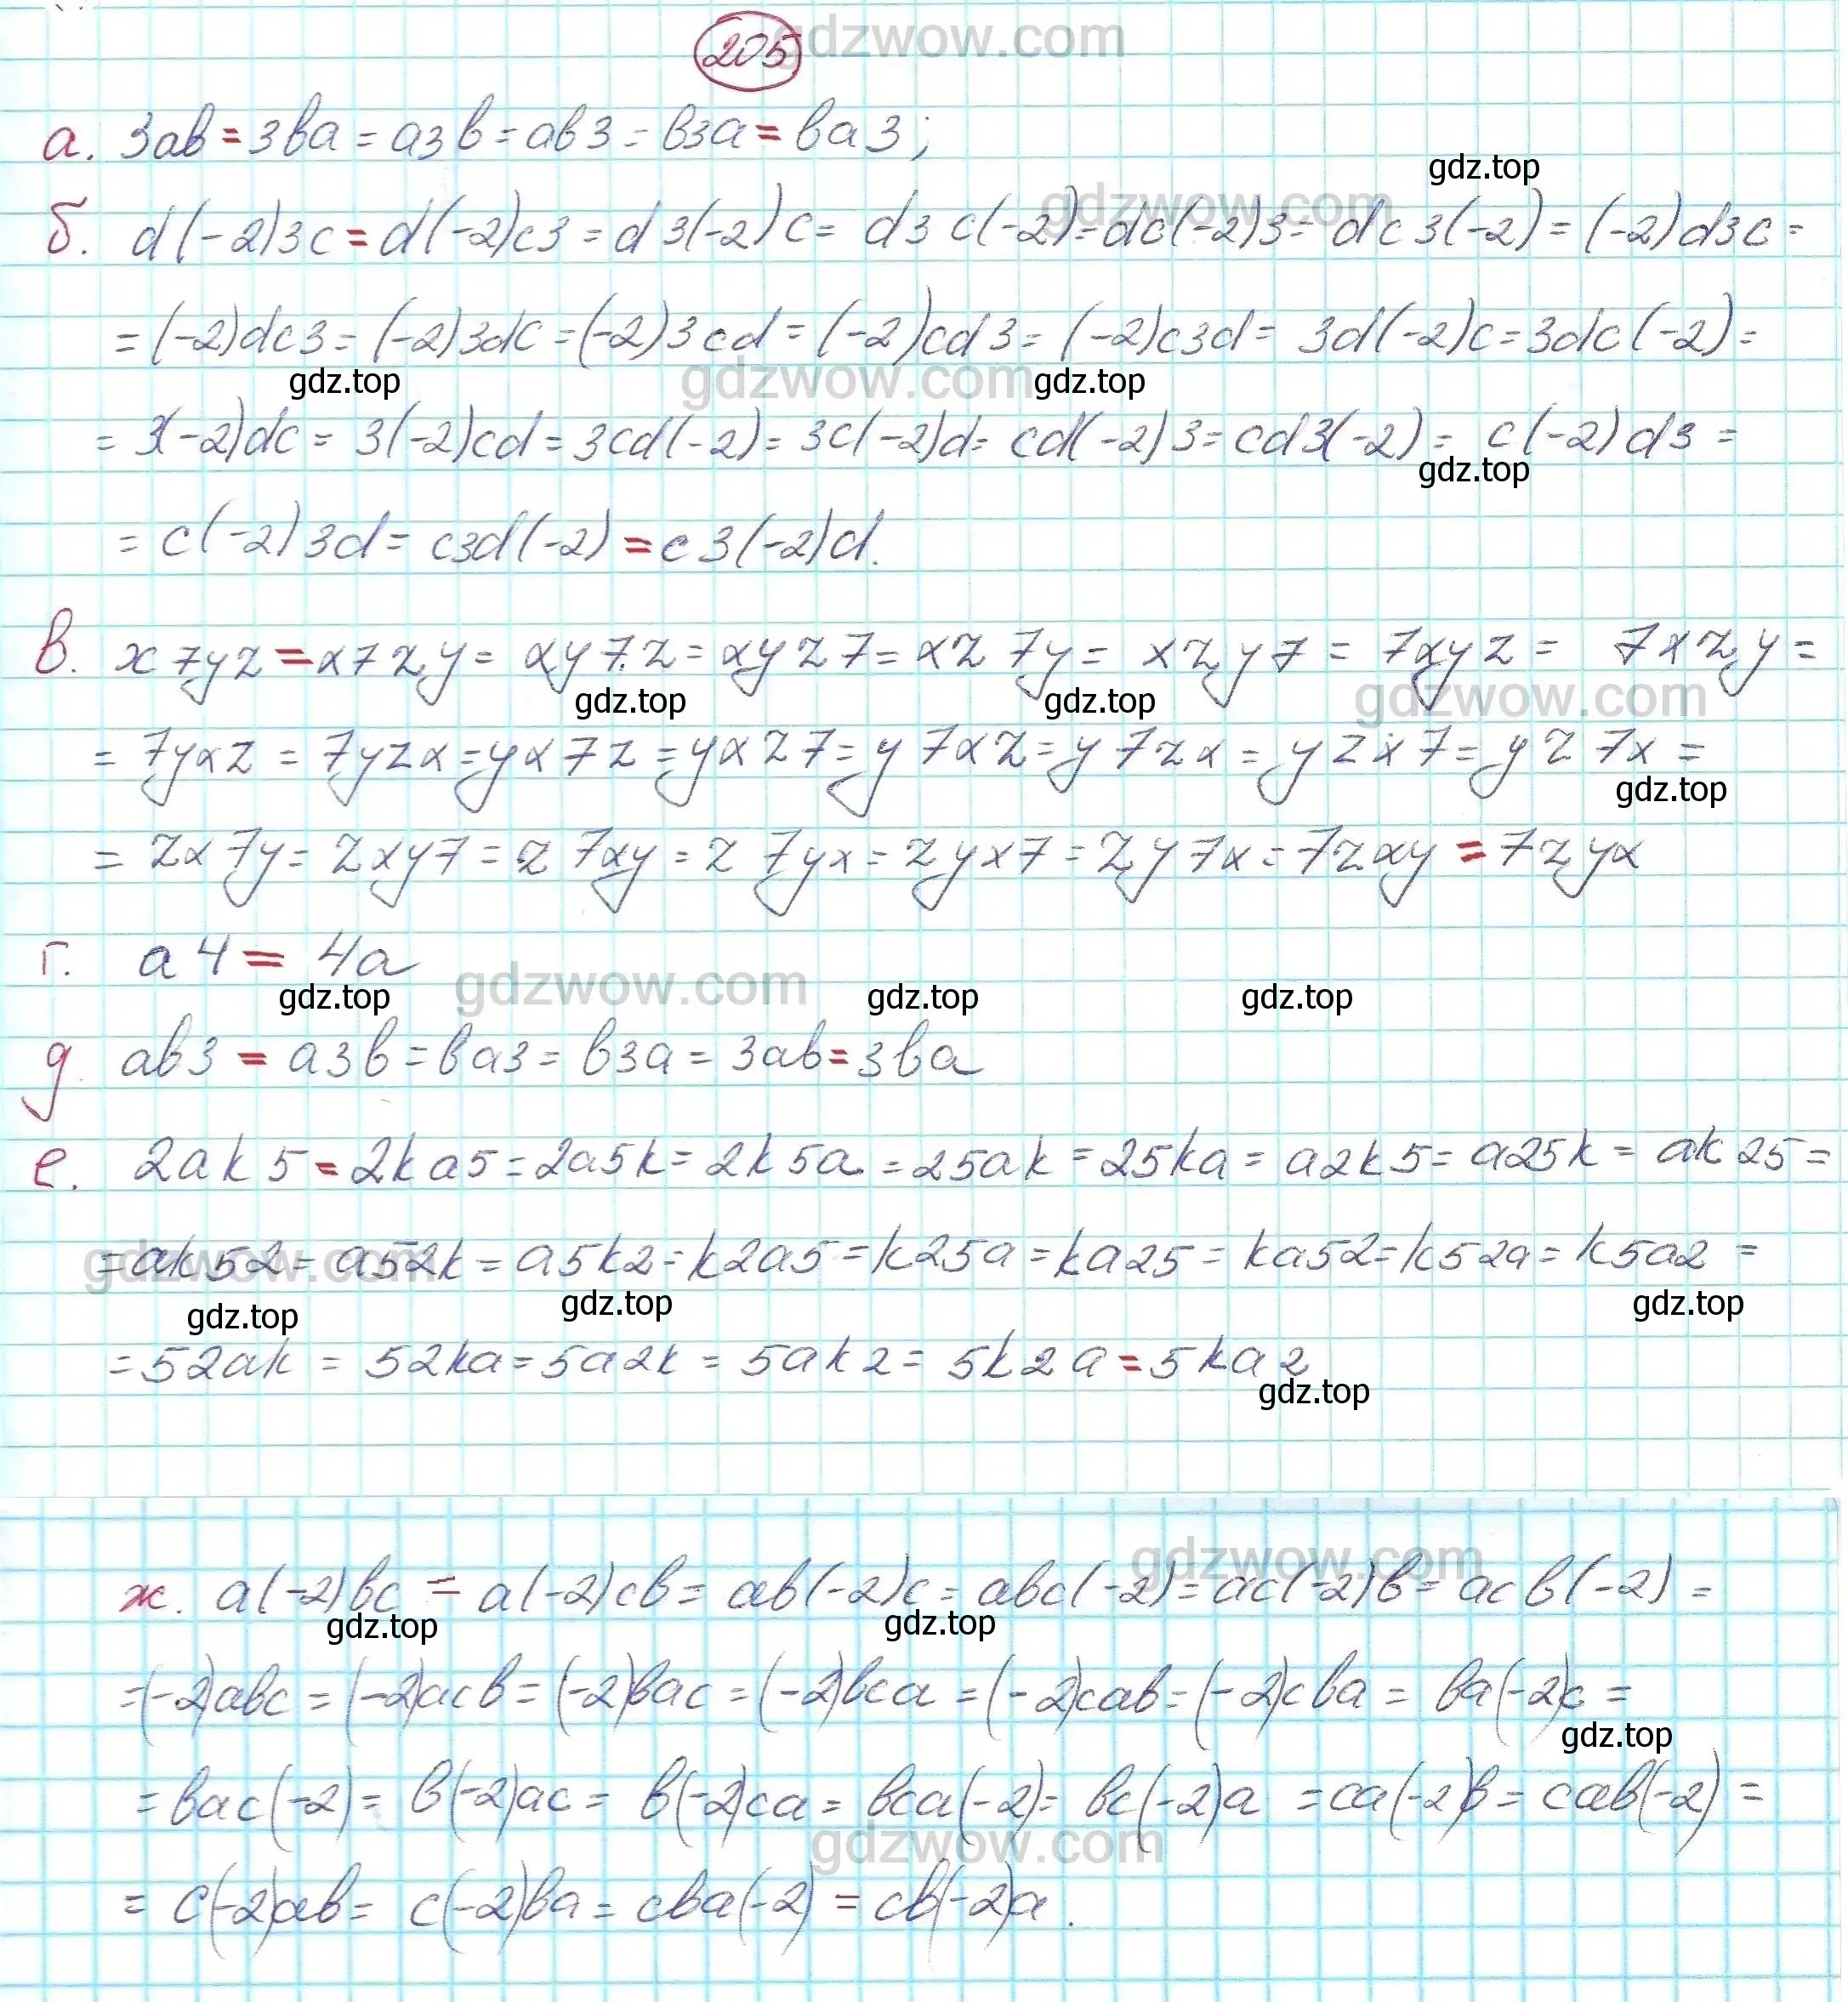 205 gdzwow.com
а. 3ab = 3ba = a3b = ab3 = b3a = ba3;
gdz.top
gdzwow.com
б. d(-2)3c = d(-2)c3 = d3(-2)c = d3c(-2) = dc(-2)3 = dc3(-2) = (-2)d3c =
= (-2)dc3 = (-2)3dc = (-2)3cd = (-2)cd3 = (-2)c3d = 3d(-2)c = 3dc(-2) =
gdz.top gdzwow.com gdz.top
= 3(-2)dc = 3(-2)cd = 3cd(-2) = 3c(-2)d = cd(-2)3 = cd3(-2) = c(-2)d3 =
gdz.top
= c(-2)3d = c3d(-2) = c3(-2)d.
в. x7yz = x7zy = xy7z = xyz7 = xz7y = xzy7 = 7xyz = 7xzy =
gdz.top gdz.top gdzwow.com
= 7yxz = 7yzx = yx7z = yxz7 = y7xz = y7zx = yzx7 = yz7x =
gdz.top
= zx7y = zxy7 = z7xy = z7yx = zyx7 = zy7x = 7zxy = 7zyx
г. a4 = 4a
gdz.top gdzwow.com gdz.top gdz.top
д ab3 = a3b = ba3 = b3a = 3ab = 3ba
е. 2ak5 = 2ka5 = 2a5k = 2k5a = 25ak = 25ka = a2k5 = a25k = ak25 =
gdzwow.com
= ak52 = a52k = a5k2 = k2a5 = k25a = ka25 = ka52 = k52a = k5a2 =
gdz.top gdz.top gdz.top
= 52ak = 52ka = 5a2k = 5ak2 = 5k2a = 5ka2
gdz.top
gdzwow.com
ж. a(-2)bc = a(-2)cb = ab(-2)c = abc(-2) = ac(-2)b = acb(-2) =
gdz.top gdz.top
= (-2)abc = (-2)acb = (-2)bac = (-2)bca = (-2)cab = (-2)cba = ba(-2)c =
gdz.top
= bac(-2) = b(-2)ac = b(-2)ca = bca(-2) = bc(-2)a = ca(-2)b = cab(-2) =
gdzwow.com
= c(-2)ab = c(-2)ba = cba(-2) = cb(-2)a.